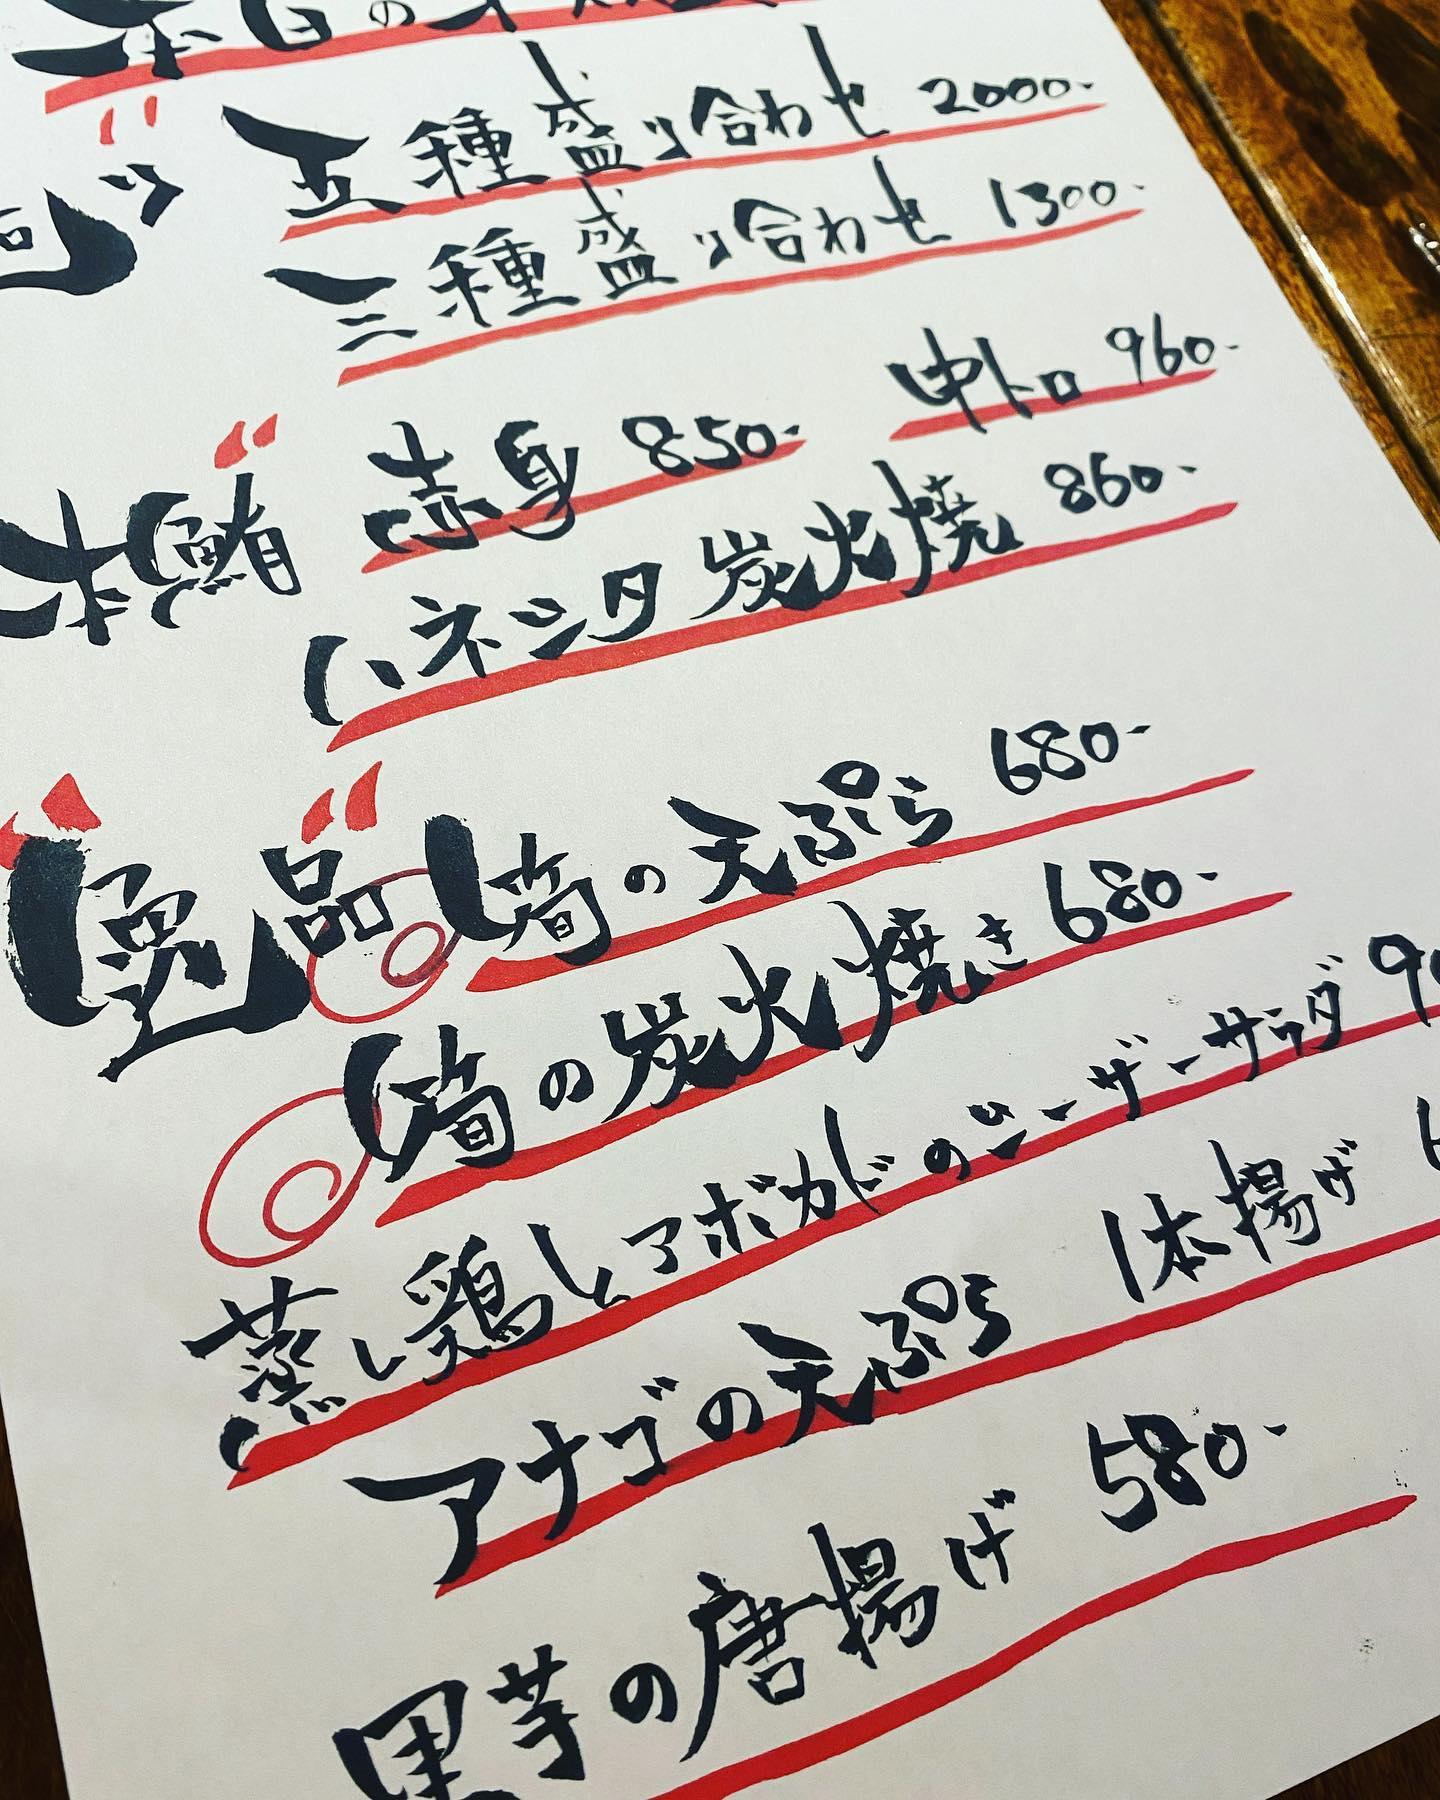 本日の
五種盛り合わせ 2000-
三種盛り合わせ 1300-
本鮪 赤身 850- 中トロ 960-
ハネシタ炭火焼 860-
逸品 筍の天ぷら 680-
筍の炭火焼き 680-
蒸し鶏とアボカドのシーザーサラダ
アナゴの天ぷら 1本揚げ
里芋の唐揚げ 580-